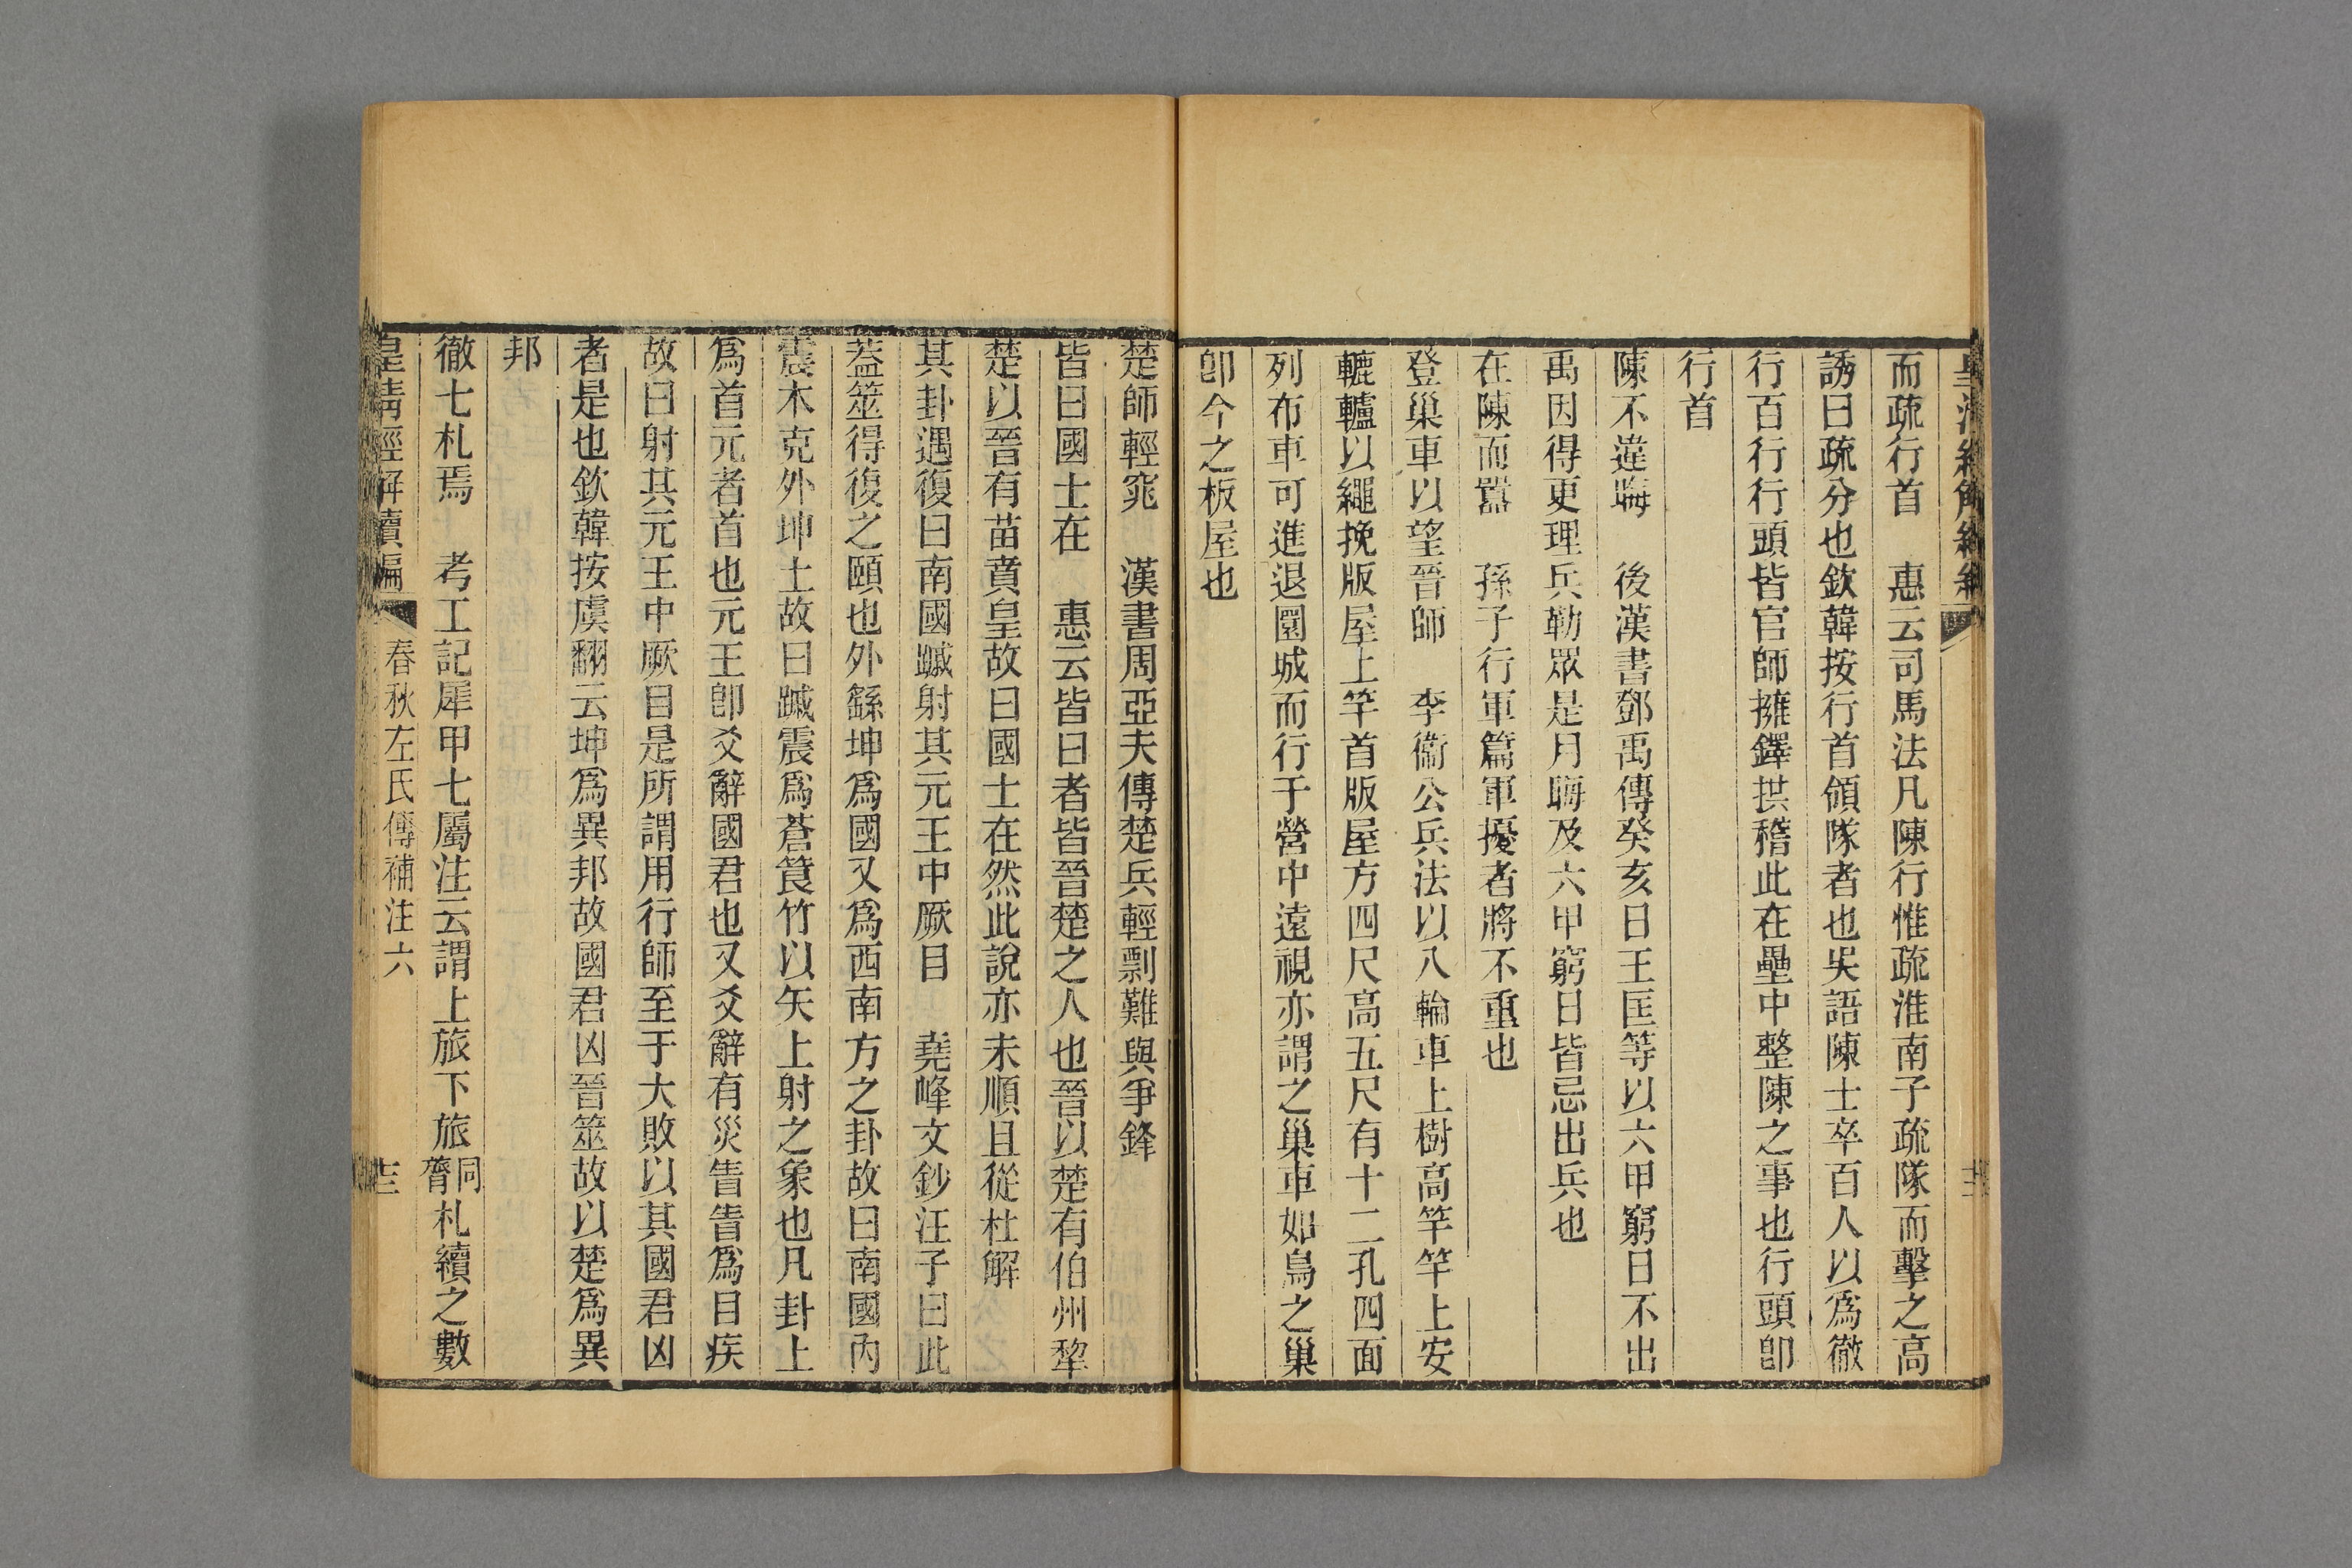 而疏行首　惠云司馬法凡陳行惟疏淮南子疏隊而擊之高
誘曰疏分也欽韓按行首領隊者也吳語陳士卒百人以爲徹
行百行行頭皆官師擁鐸拱稽此在壘中整陳之事也行頭卽
行首
陳不違晦　後漢書鄧禹傳癸亥日王匡等以六甲窮日不出
禹因得更理兵勒眾是月晦及六甲窮日皆忌出兵也
在陳而嚻　孫子行軍篇軍擾者將不重也
登巢車以望晉師　李衞公兵法以八輪車上樹高竿竿上安
轆轤以繩挽版屋上竿首版屋方四尺高五尺有十二孔四面
列布車可進退圜城而行于營中遠視亦謂之巢車如鳥之巢
卽今之板屋也
楚師輕窕　漢書周亞夫傳楚兵輕剽難與爭鋒
皆曰國士在　惠云皆曰者皆晉楚之人也晉以楚有伯州犂
楚以晉有苗賁皇故曰國士在然此說亦未順且從杜解
其卦遇復曰南國䠞射其元王中厥目　堯峰文鈔汪子曰此
蓋筮得復之頤也外繇坤爲國又爲西南方之卦故曰南國內
震木克外坤土故曰䠞震爲蒼筤竹以矢上射之象也凡卦上
爲首元者首也元王卽爻辭國君也又爻辭有災眚眚爲目疾
故曰射其元王中厥目是所謂用行師至于大敗以其國君凶
者是也欽韓按虞翻云坤爲異邦故國君凶晉筮故以楚爲異
邦
徹七札焉　考工記犀甲七屬注云謂上旅下旅同齊札續之數
皇清經解續編　春秋左氏傳補注六　十三